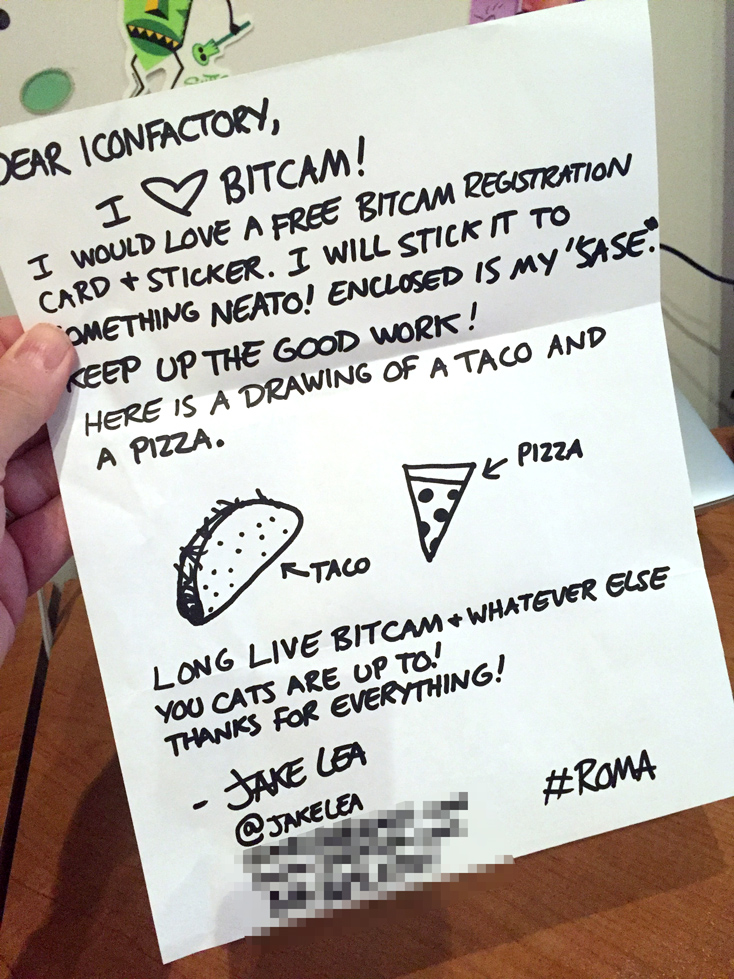 DEAR ICONFACTORY,
I ♡ BITCAM!
I WOULD LOVE A FREE BITCAM REGISTRATION
CARD + STICKER. I WILL STICK IT TO
SOMETHING NEATO! ENCLOSED IS MY "SASE".
KEEP UP THE GOOD WORK!
HERE IS A DRAWING OF A TACO AND
A PIZZA.
PIZZA
TACO
LONG LIVE BITCAM + WHATEVER ELSE
YOU CATS ARE UP TO!
THANKS FOR EVERYTHING!
- JAKE LEA
@JAKELEA
#ROMA